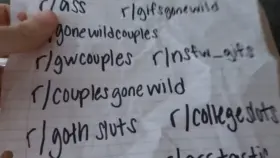 r/ass r/gifsgonewild
gonewildcouples
r/gwcouples r/nsfw_gifs
r/couplesgonewild
r/goth sluts r/collegesluts